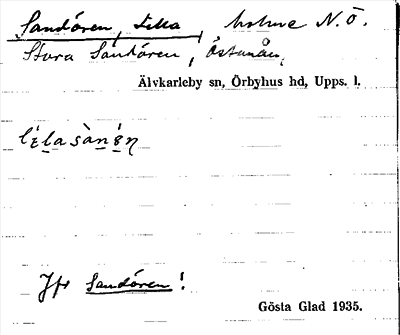 Sandören, Lilla, holme N. Ö.
Stora Sandören, Östanån,
Älvkarleby sn, Örbyhus hd, Upps. l.
Jfr Sandören!
Gösta Glad 1935.